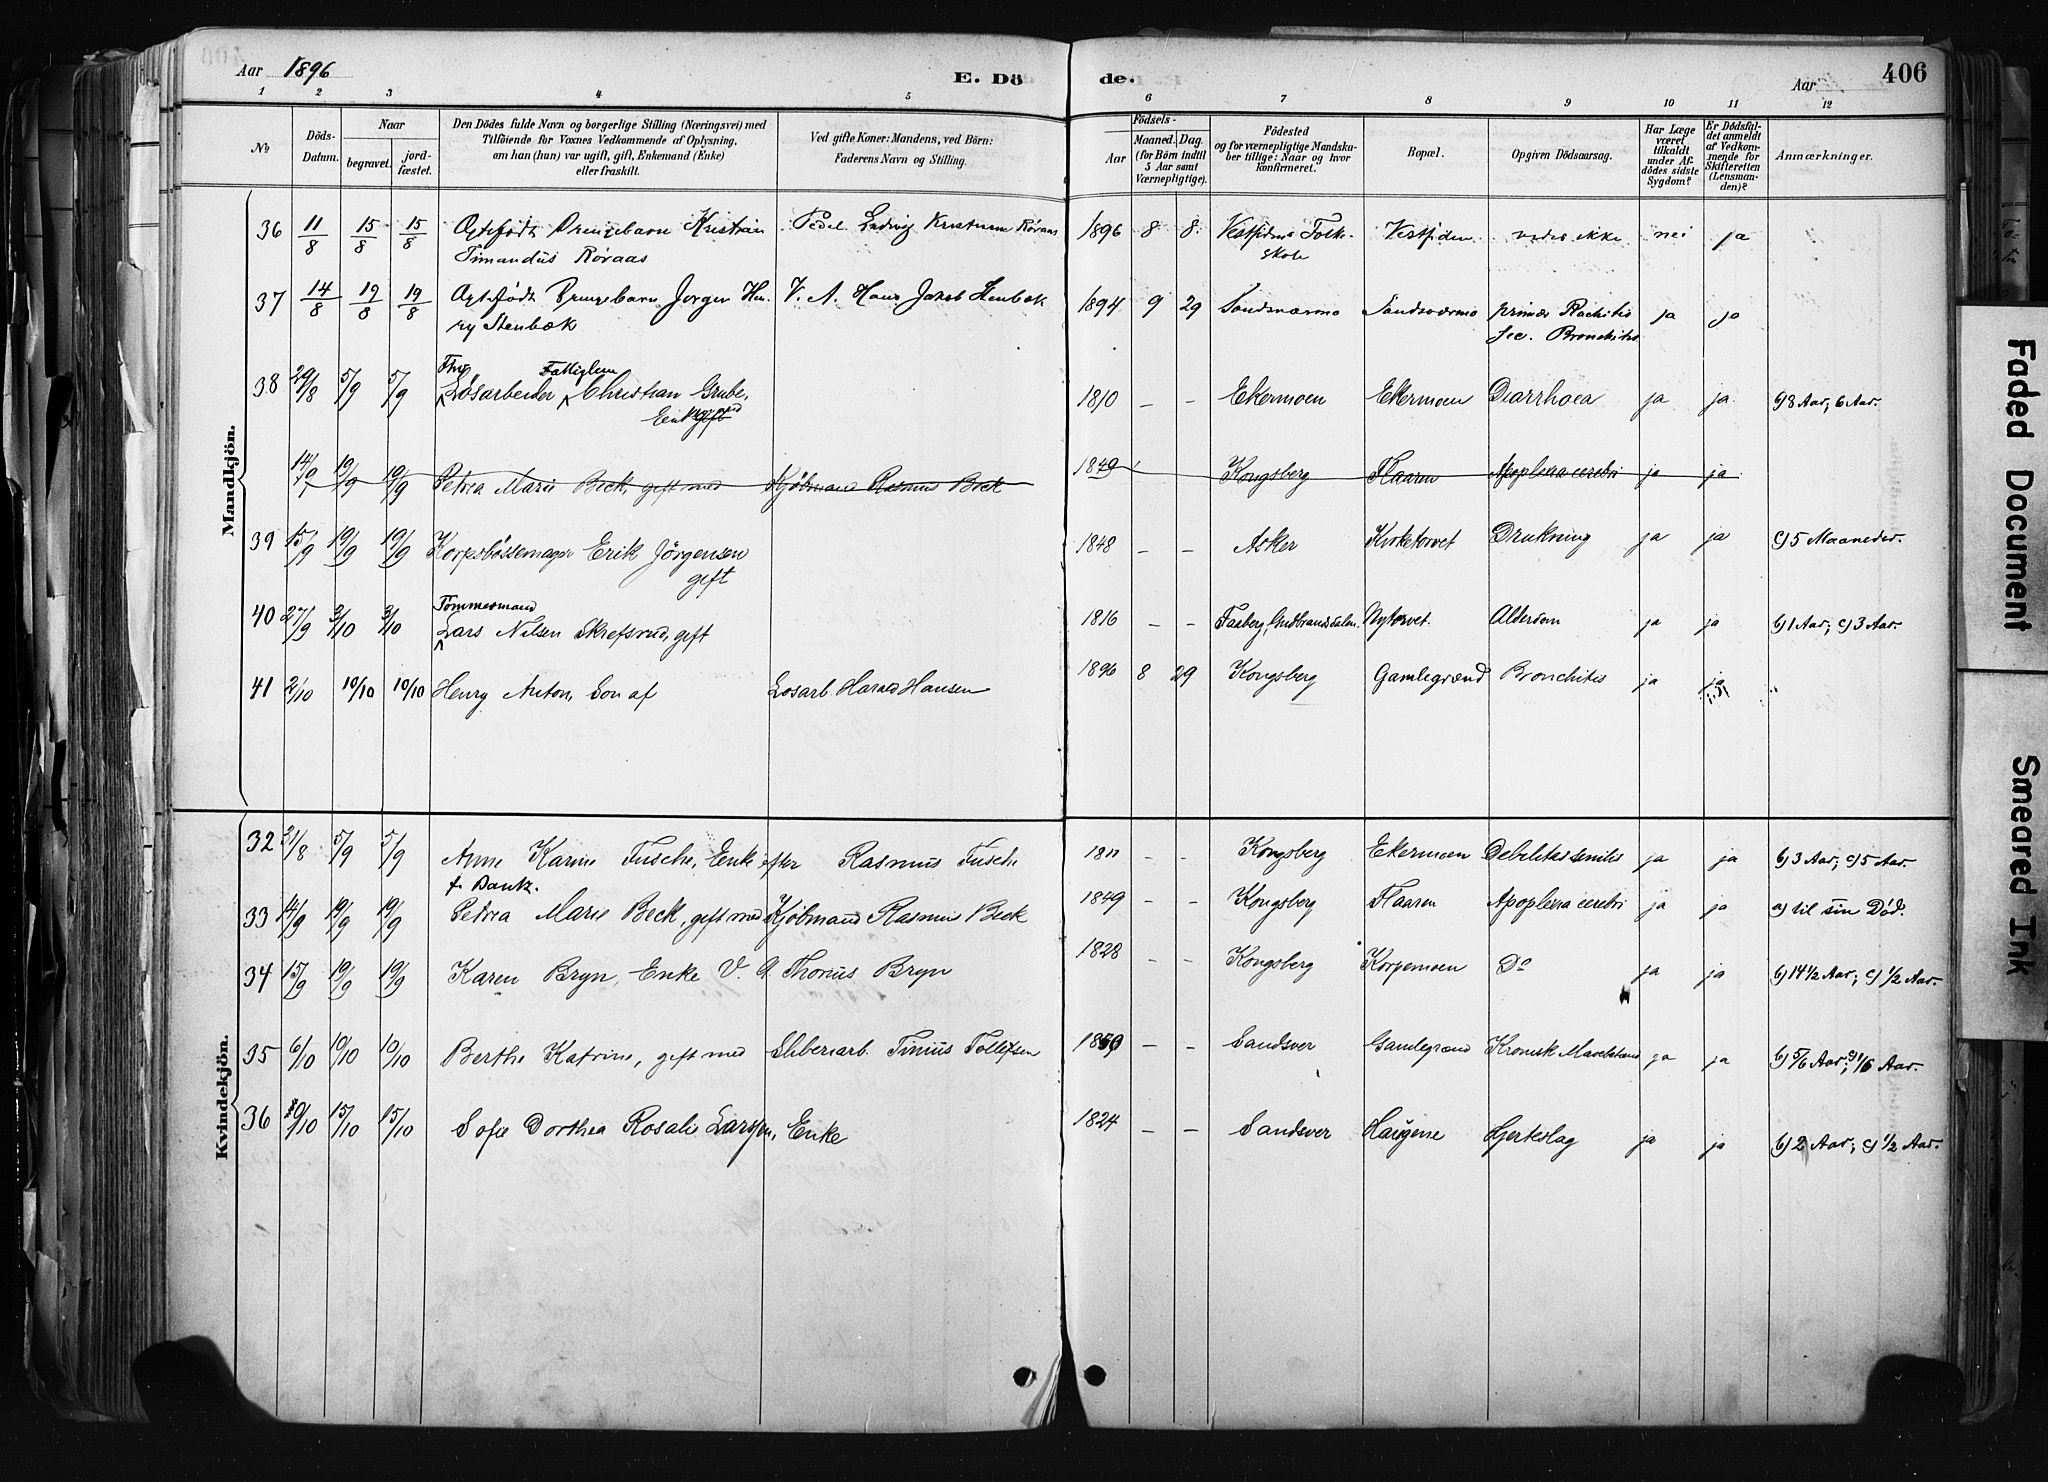 Aar 1896
E. Dö de.
Aar 406
1 2 3 4 5 6 7 8 9 10 11 12
No
Döds-Datum.
Naar
begravet.
jord-fæstet.
Den Dödes fulde Navn og borgerlige Stilling (Næringsvei) med
Tilföiende for Voxnes Vedkommende af Oplysning,
om han (hun) var ugift, gift, Enkemand (Enke)
eller fraskilt.
Ved gifte Koner: Mandens, ved Börn:
Faderens Navn og Stilling.
Födsels-
Aar
Maaned. Dag.
(for Börn indtil
5 Aar samt
Værnepligtige).
Födested
og for værnepligtige Mandska-
ber tillige: Naar og hvor
konfirmeret.
Bopæl.
Opgiven Dödsaarsag.
Har Læge
været
tilkaldt
under Af-
dödes sidste
Sygdom?
Er Dödsfal-
det anmeldt
af Vedkom-
mende for
Skifteretten
(Lensman-
den)?
Anmærkninger.
Mandkjön.
36 11/8 15/8 15/8 Ægtefødt Drengebarn Kristian Ludvig Røraas 1896 8 8 Folke- nei ja
Timandus Røraas skole
37 14/8 19/8 19/8 Ægtefødt Drengebarn Jørgen Hen- V. A. Hans Jakob Stenbæk 1894 9 29 Sandsværmo Sandsværmo primær Rachitis ja ja
ry Stenbæk sec. Bronchitis
Fattiglem
38 29/8 5/9 5/9 Løsarbeider Christian Grube, 1810 – – Ekermoen Ekermoen Diarrhoea ja ja b) 8 Aar; 6 Aar.
14/9 19/9 19/9 Petrea Marie Beck, gift med Kjøbmand Rasmus Beck 1849 Kongsberg Flaaren Apoplexia cerebri ja ja
39 15/9 19/9 19/9 Korpsbøssemager Erik Jörgensen 1848 – – Asker Kirketorvet Drukning ja ja c) 5 Maaneder.
gift
Tømmermand
40 27/9 3/10 3/10 Lars Nilsen Skrefsrud, gift 1816 – – Faaberg, Gudbrandsdalen Nytorvet. Alderdom ja ja b) 1 Aar; c) 3 Aar.
41 2/10 10/10 10/10 Henry Anton, Søn af Løsarb. Harald Hansen 1896 8 29 Kongsberg Gamlegrænd Bronchitis ja ja
Kvindekjön.
32 31/8 5/9 5/9 Anne Karine Fusche, Enke efter Rasmus Fusche 1811 – – Kongsberg Ekermoen Debilitas senilis ja ja b) 3 Aar; c) 5 Aar.
f. Bantz.
33 14/9 19/9 19/9 Petrea Marie Beck, gift med Kjøbmand Rasmus Beck 1849 – – Kongsberg Flaaren Apoplexia cerebri ja ja a) til sin Død.
34 15/9 19/9 19/9 Karen Bryn, Enke V. A. Thorius Bryn 1828 – – Kongsberg Korpemoen Do ja ja b) 14 1/2 Aar; c) 1/2 Aar.
35 6/10 10/10 10/10 Berthe Katrine, gift med Sliberiarb. Tinius Tollefsen 1850 – – Sandsver Gamlegrænd Kronisk ja ja b) 5/6 Aar; c) 1/6 Aar.
36 9/10 15/10 15/10 Sofie Dorthea Rosalie Larssen, Enke 1824 – – Sandsver Haugene Hjerteslag ja ja b) 2 Aar; c) 1/2 Aar.
Faded Document
Smeared Ink